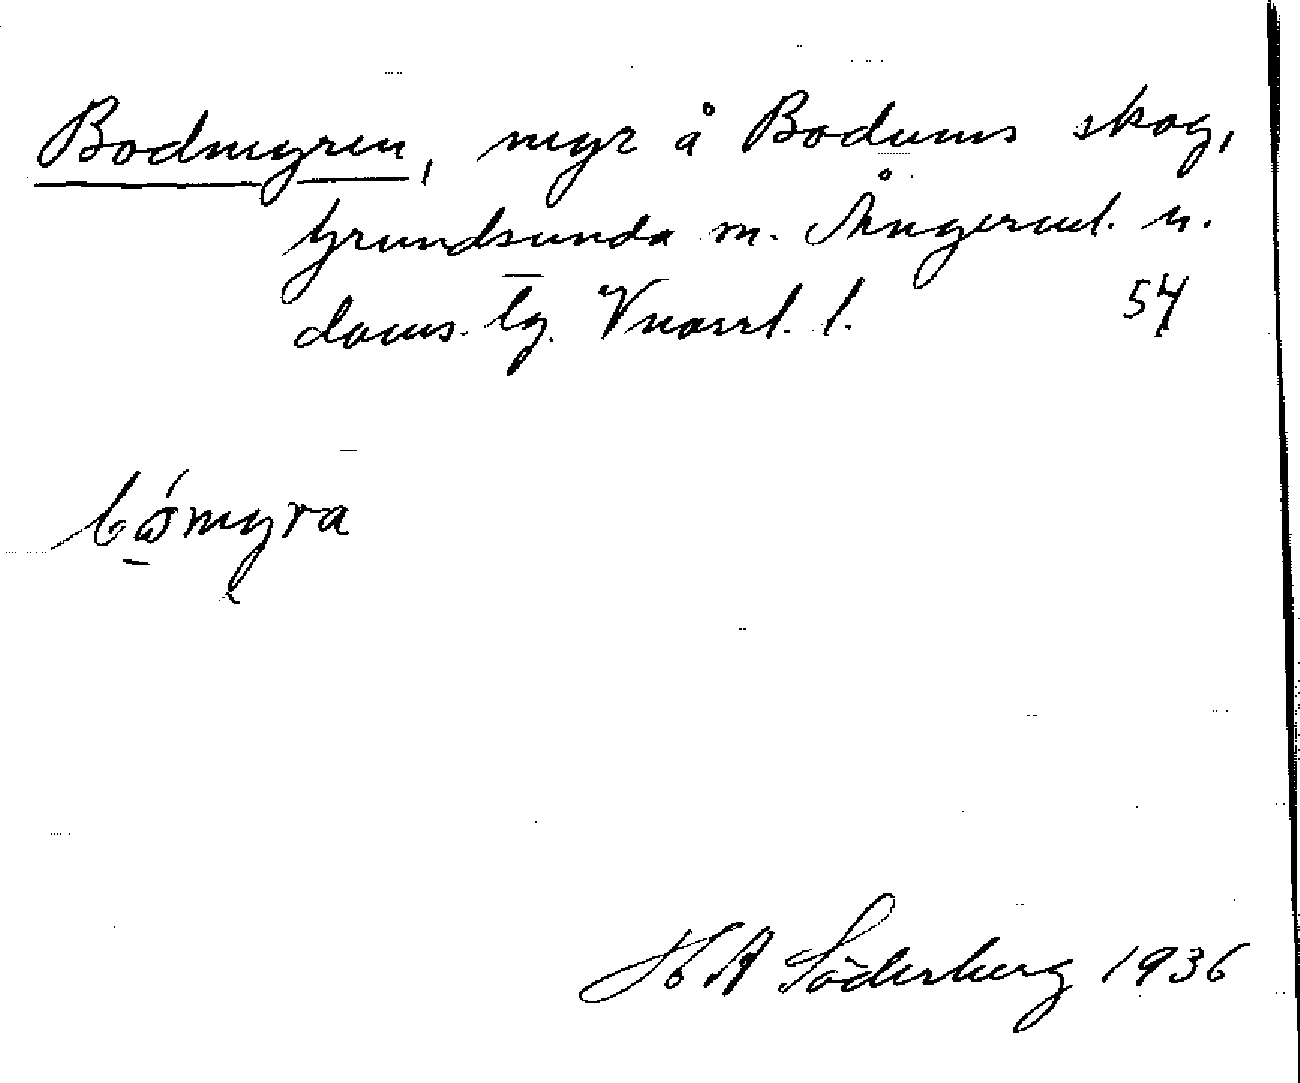 Bodmyren, myr å Bodums skog,
Grundsunda sn. Ångerml. n.
doms. tg. Vnorrl. l. 54
myra
H A Söderberg 1936